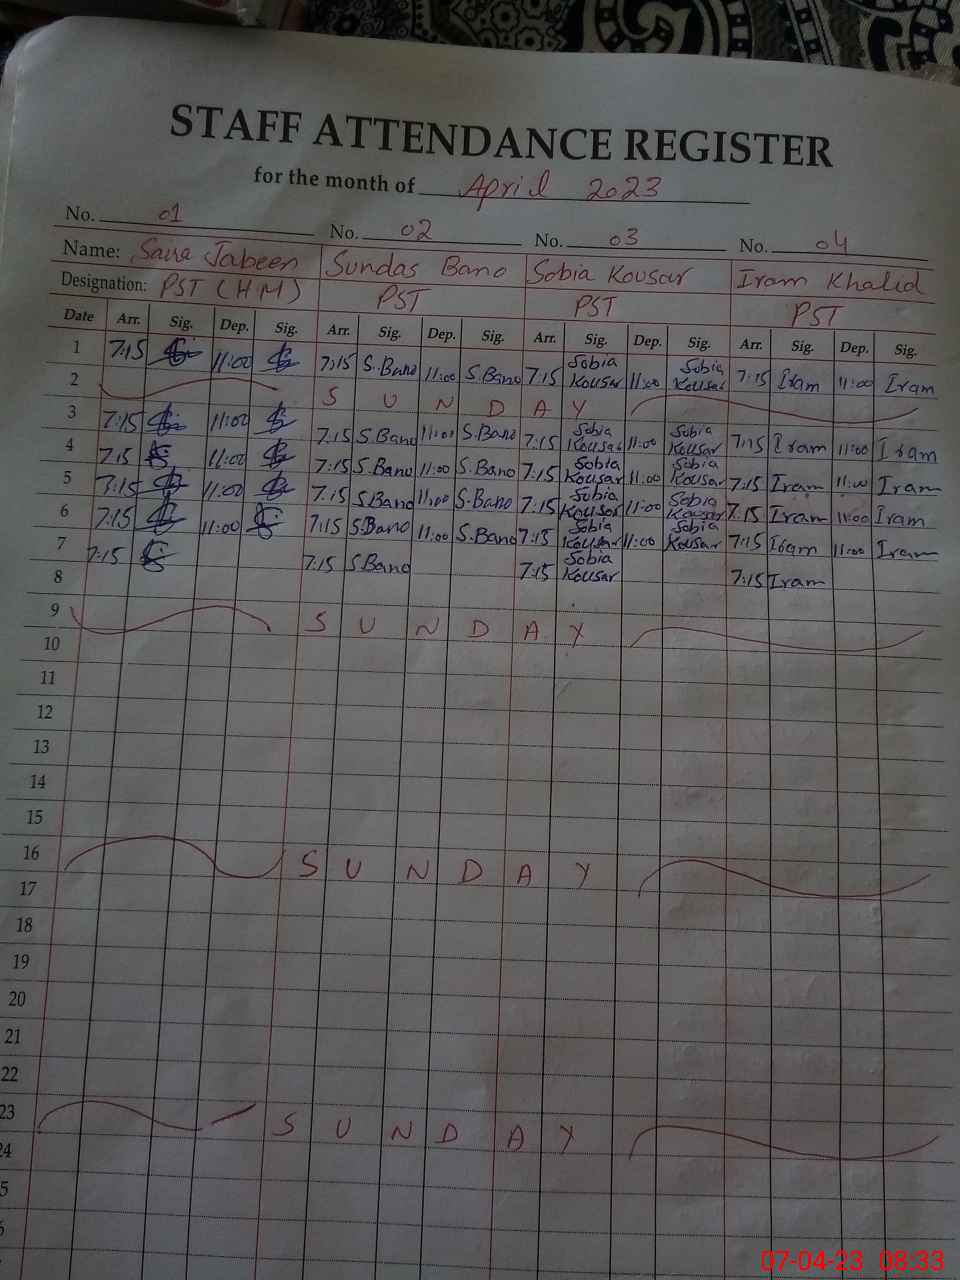 STAFF ATTENDANCE REGISTER
for the month of April 2023
No. 01 No. 02 No. 03 No. 04
Name: Saira Jabeen Sundas Bano Sobia Kousar Iram Khalid
Designation: PST (HM) PST PST PST
Date Arr. Sig. Dep. Sig. Arr. Sig. Dep. Sig. Arr. Sig. Dep. Sig. Arr. Sig. Dep. Sig.
1 7:15 11:00 7:15 S.Bano 11:00 S.Bano 7:15 Sobia Kousar 11:00 Sobia Kousar 7:15 Iram 11:00 Iram
2 SUNDAY
3 7:15 11:00 7:15 S.Bano 11:00 S.Bano 7:15 Sobia Kousar 11:00 Sobia Kousar 7:15 Iram 11:00 Iram
4 7:15 11:00 7:15 S.Bano 11:00 S.Bano 7:15 Sobia Kousar 11:00 Sobia Kousar 7:15 Iram 11:00 Iram
5 7:15 11:00 7:15 S.Bano 11:00 S.Bano 7:15 Sobia Kousar 11:00 Sobia Kousar 7:15 Iram 11:00 Iram
6 7:15 11:00 7:15 S.Bano 11:00 S.Bano 7:15 Sobia Kousar 11:00 Sobia Kousar 7:15 Iram 11:00 Iram
7 7:15 7:15 S.Bano 7:15 Sobia Kousar 7:15 Iram
8
9 SUNDAY
10
11
12
13
14
15
16 SUNDAY
17
18
19
20
21
22
23 SUNDAY
24
5
6
07-04-23 08:33